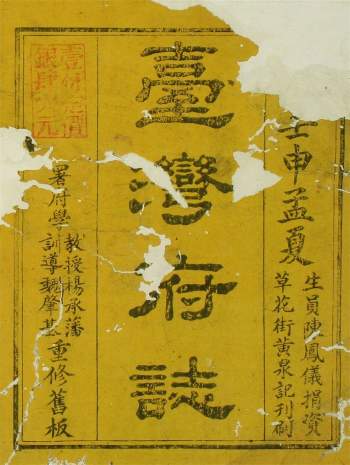 壬申孟夏
生員陳鳳儀捐資
草花街黃泉記刊刷
臺灣府誌
署府學
教授楊承藩
訓導魏肇基
重修舊板
壹部 價
銀肆 元